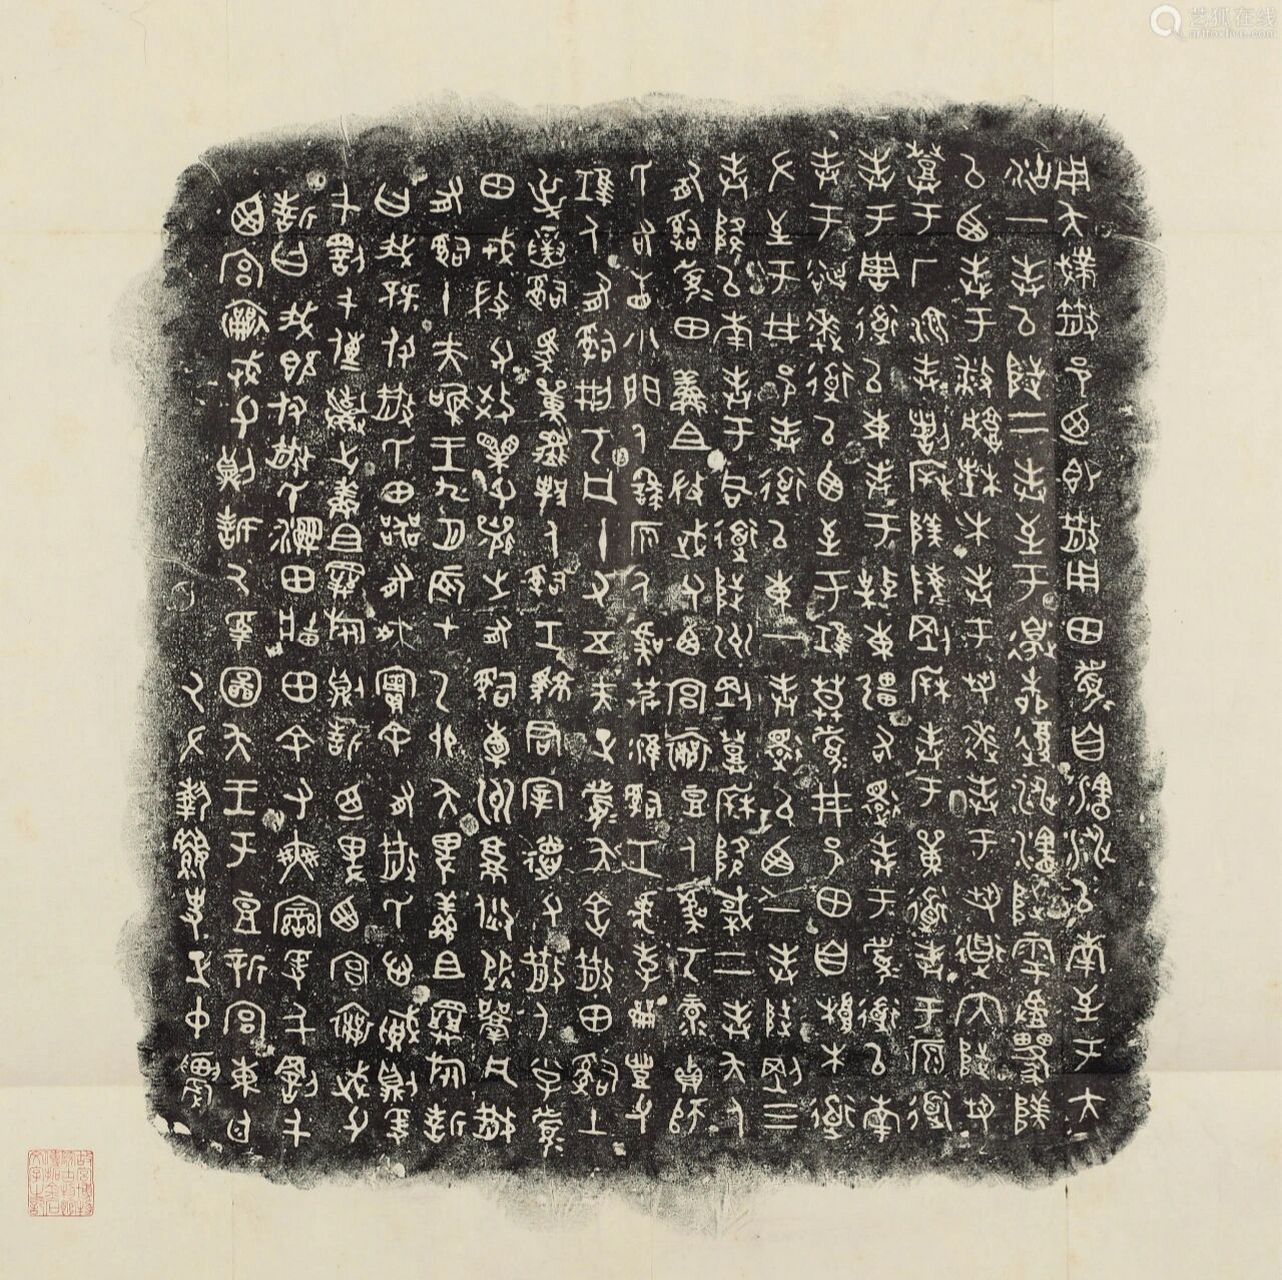 用夨𢦏散邑迺即散用田眉自瀗涉以南至于大
沽一封以陟二封至于邊柳復涉瀗陟雩
以西封于播城楮木封于芻逨封于芻道内陟芻
登于厂湶封諸𣏟陵陵剛𣏟封于單道封于原道
封于周道以東封于東疆右還封于眉道以南
封于逨道以西至于鴻莫眉井邑田自桹木道
左至于井邑封道以東一封還以西一封陟剛三
封降以南封于同道陟州剛登𣏟降棫二封夨人
有司眉田鮮且微武父西宮襄豆人虞丂彔貞師
氏右眚小門人繇原人虞艿淮司工虎孝開豐父
鴻人有司刑丂凡十又五夫正眉夨舍散田司土
屰寅司馬單邦人司工君宰德父散人小子眉
田戎微父效果父襄之有司橐州就焂從凡散
有司十夫唯王九月辰才乙卯夨卑鮮且旅誓
曰我既付散氏田器有爽實余有散氏心賊則爰
千罰千傳棄之鮮且旅則誓迺卑西宮襄武父
誓曰我既付散氏濕田牆田余有爽䜌爰千罰千
西宮襄武父則誓厥受圖夨王于豆新宮東廷
厥左執史正中農
故宮博物院古物館傳拓金石文字之記
艺狐在线
artfoxlive.com